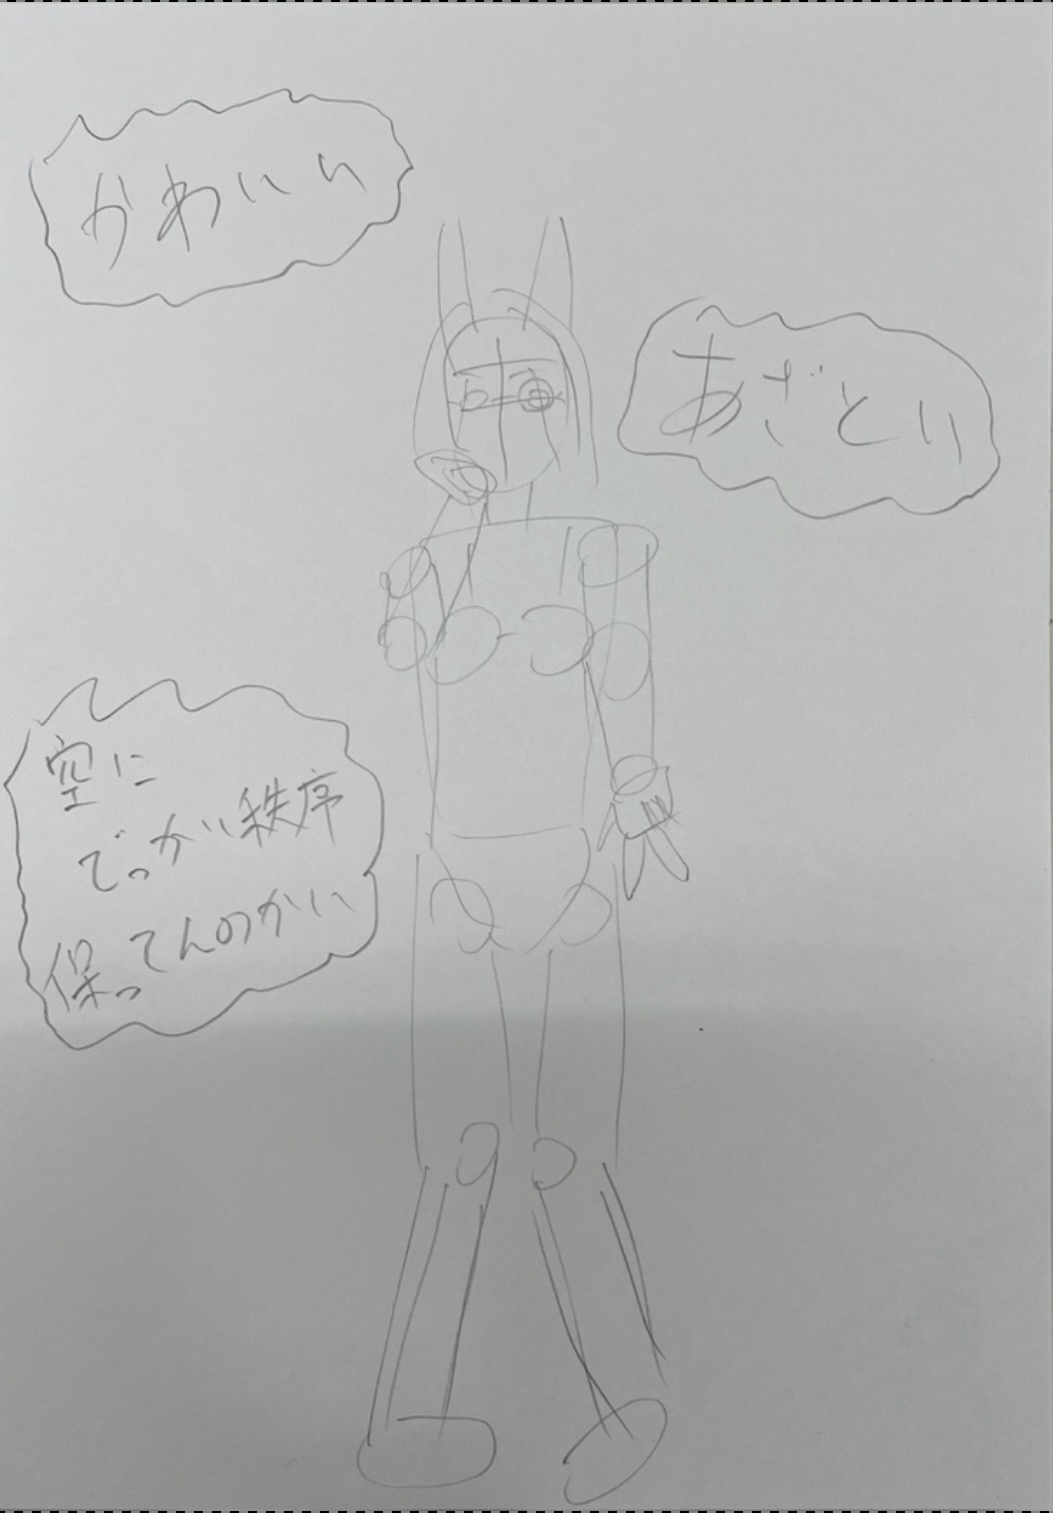 かわいい
あざとい
空に
でっかい秩序
保ってんのかい